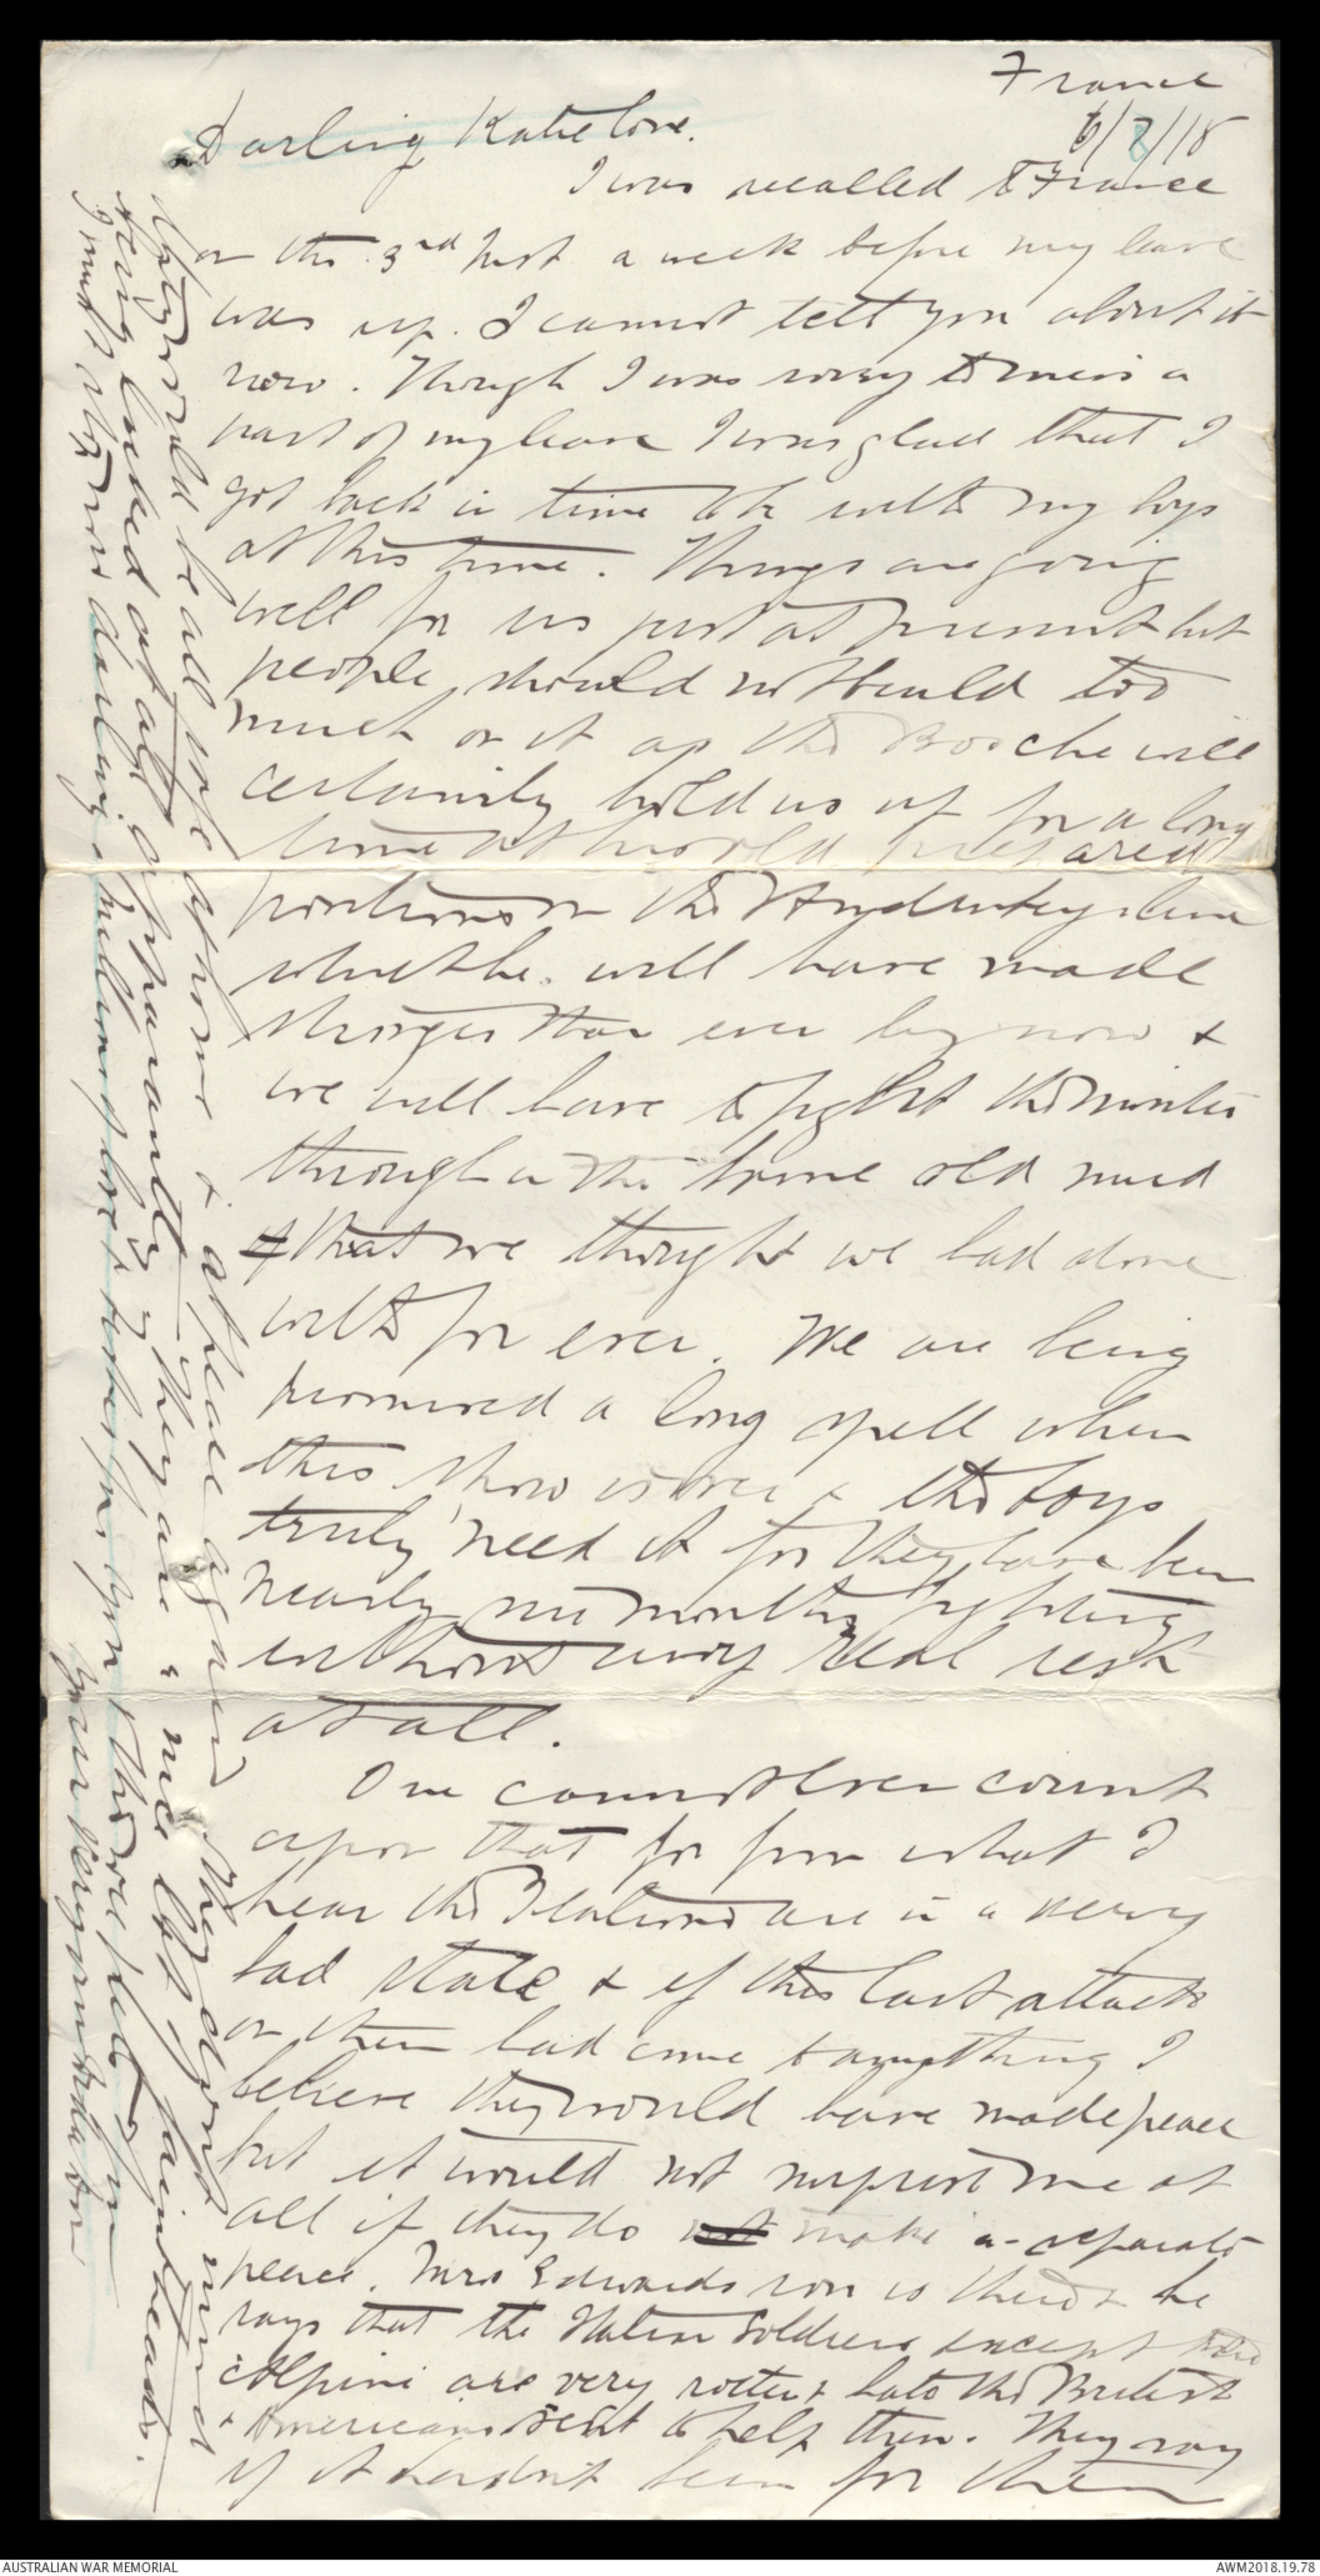 France
6/8/18
Darling Katie love.
I was recalled to France
on the 3rd Inst a week before my leave
was up. I cannot tell you about it
now. Though I was sorry to miss a
part of my leave I was glad that I
got back in time to be with my boys
at this time. Things are going
well for us just at present but
people should not build too
much on it as the Bosche will
certainly hold us up for a long
time at his old prepared
positions on the Hindenburg line
what he will have made
stronger than ever by now &
we will have to fight the winter
through in the same old mud
that we thought we had done
with for ever. We are being
promised a long spell when
this show is over & the boys
truly need it for they have been
nearly six months fighting
without any real rest
at all.
One cannot even count
upon that for from what I
hear the Italians are in a very
bad state & if this last attack
on them had come to anything I
believe they would have made peace
but it would not surprise me at
all if they do not make a separate
peace. Mrs Edwards son is there & he
says that the Italian Soldiers except the
Alpini are very rotten & hate the British
& Americans sent to help them. They say
if it hadn't been for them
they would be all safe at home & at peace again. They don't mind
being licked at all apparently. They are a nice lot of faint hearts.
I must stop now darling. A million love & kisses for you & the wee fellow from
your very own